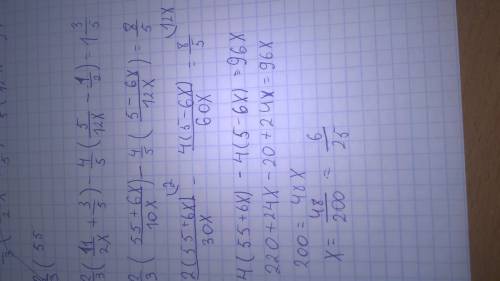 2/3 ( 55
2/3 ( 11/2x + 3/5 ) - 4/5 ( 5/12x - 1/2 ) = 1 3/5
2/3 ( 55+6x/10x ) - 4/5 ( 5-6x/12x ) = 8/5
2(55+6x)/30x - 4(5-6x)/60x = 8/5
4(55+6x) - 4(5-6x) = 96x
220+24x-20+24x=96x
200 = 48x
x = 48/200 = 6/25